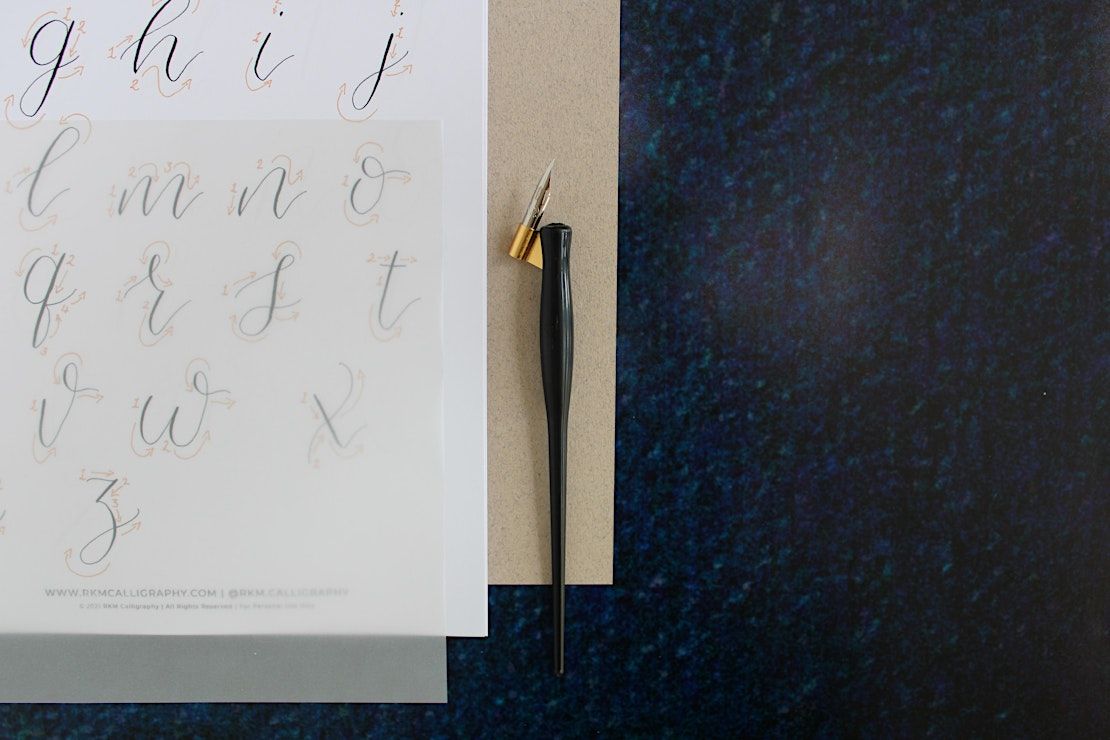 g h i j
l m n o
q r s t
v w x
z
WWW.RKMCALLIGRAPHY.COM | @RKM.CALLIGRAPHY
© 2021 RKM Calligraphy | All Rights Reserved | For Personal Use Only